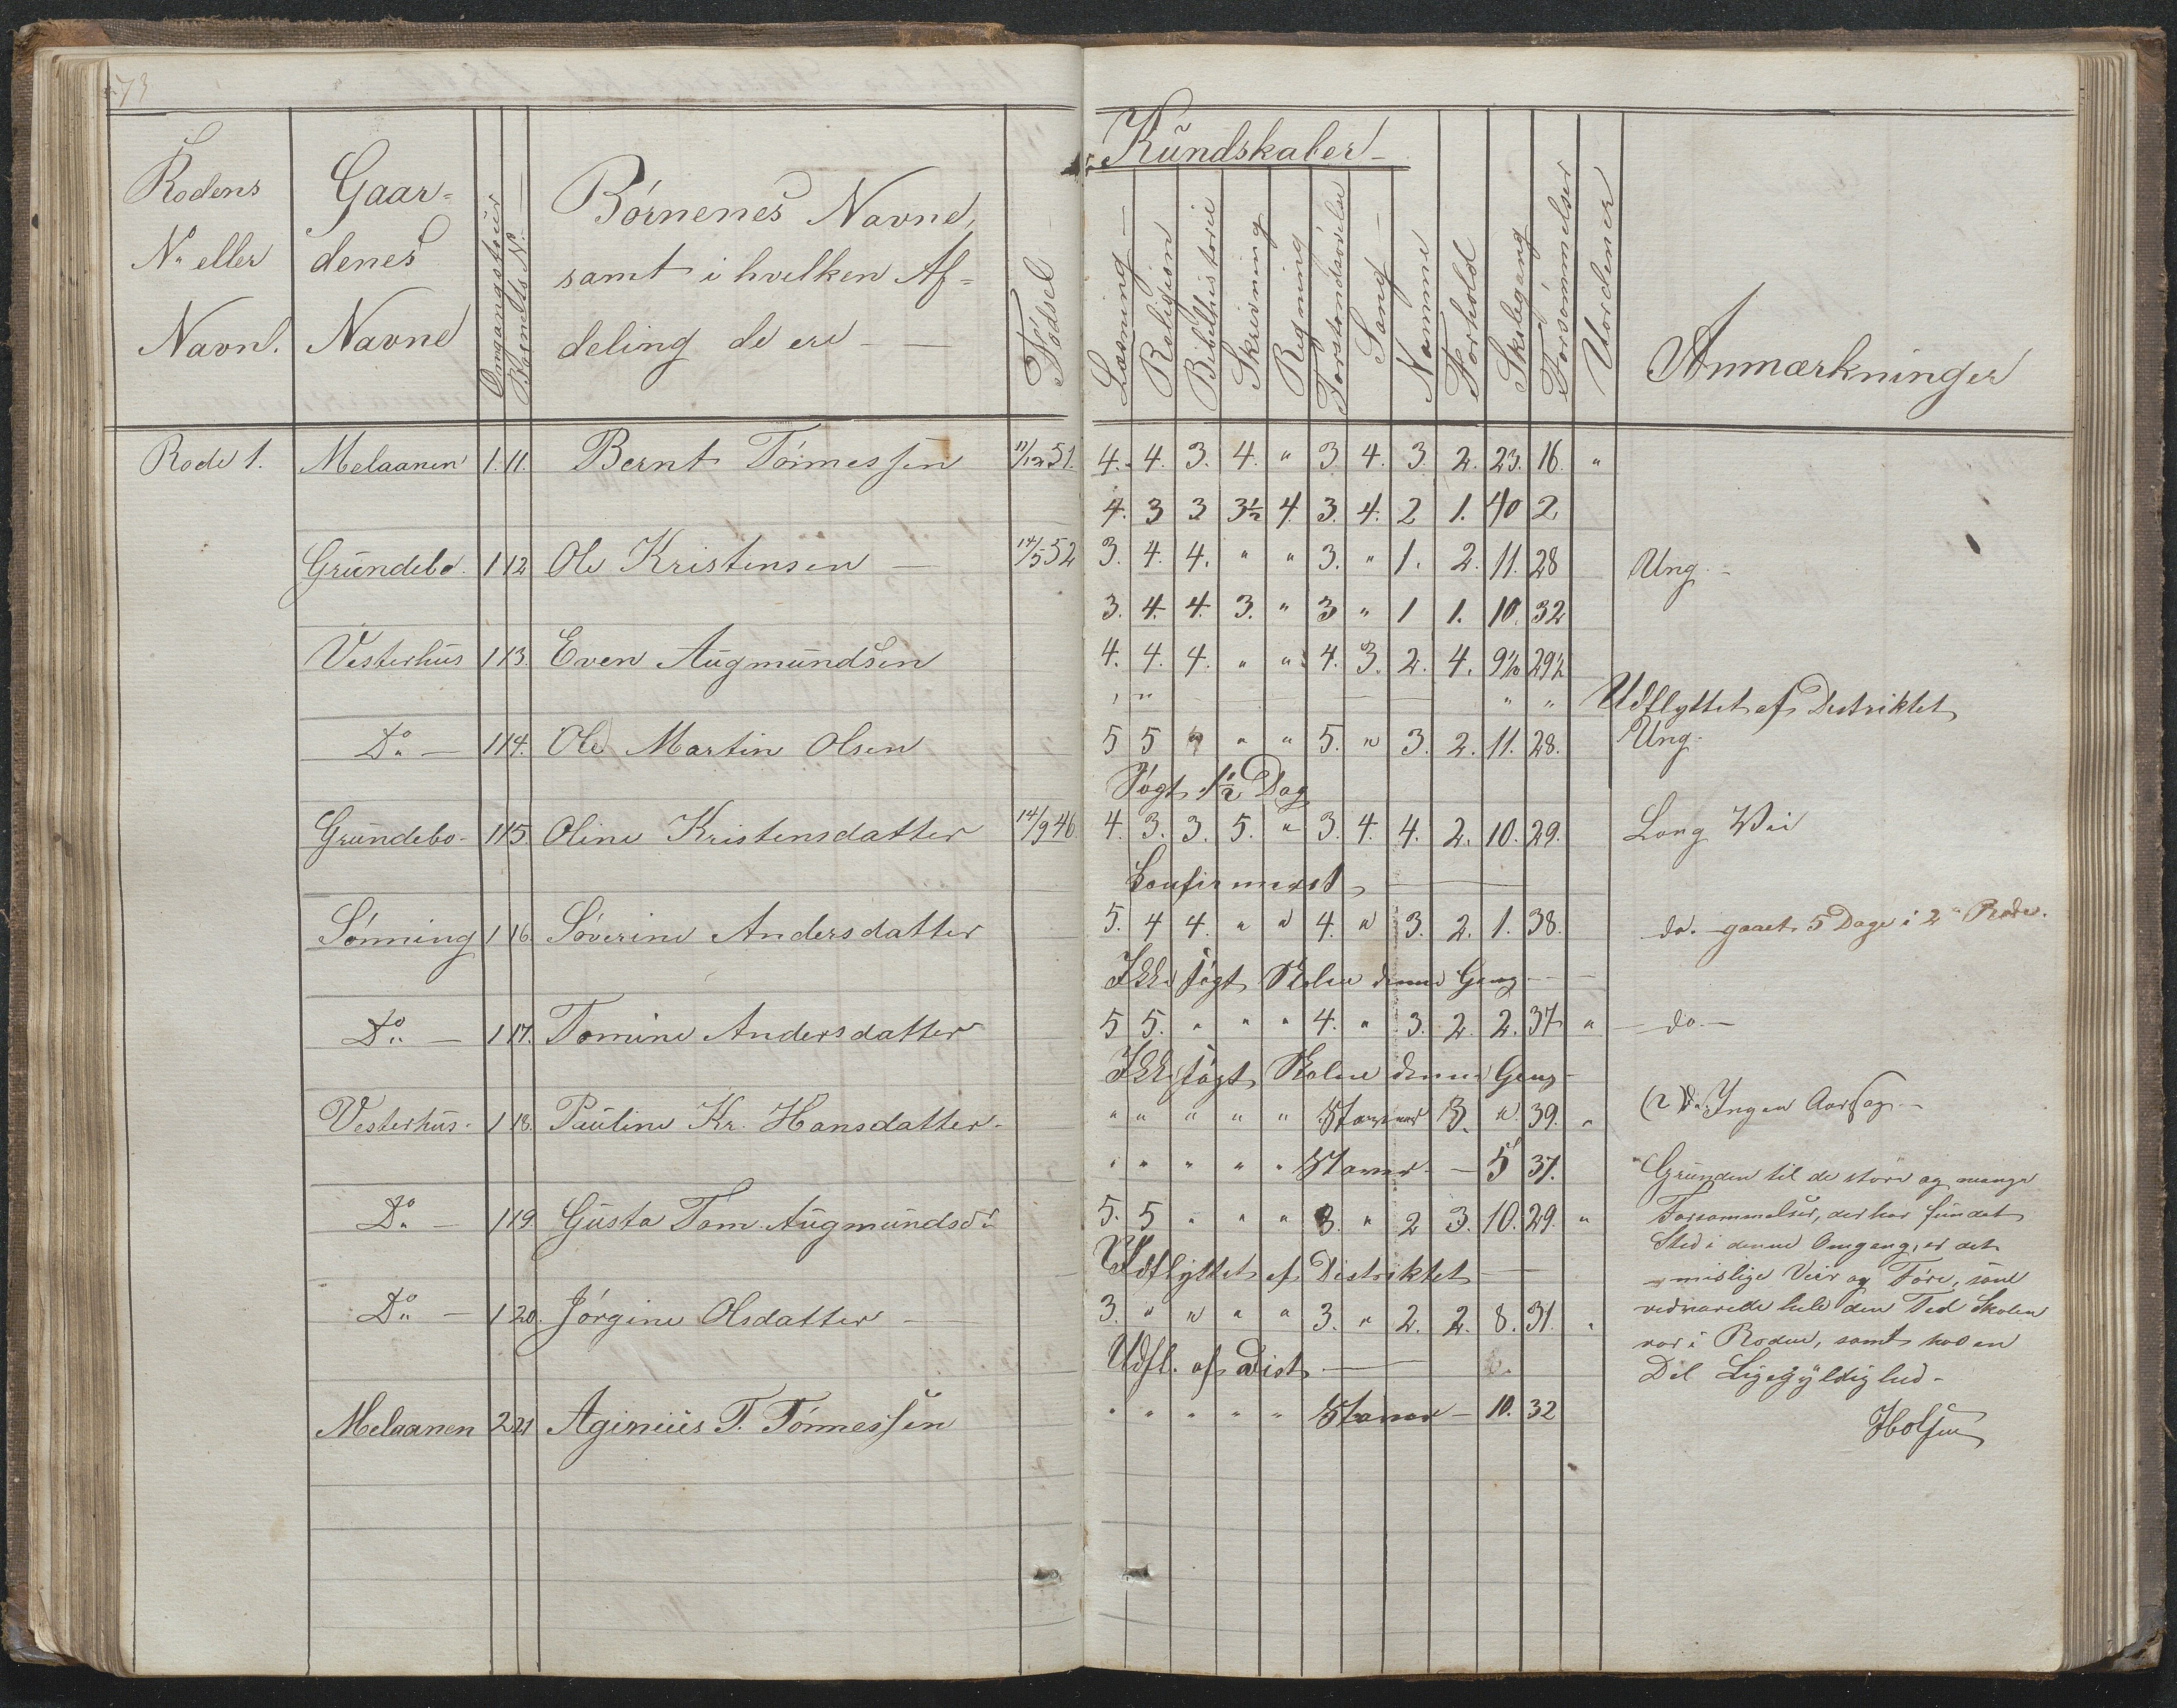 73
Rodens N° eller Navn.
Gaardenes Navne
Omgangstour
Barnets N°
Börnenes Navne, samt i hvilken Afdeling de ere
Födsel
Kundskaber
Læsning
Religion
Bibelhistorie
Skrivning
Regning
Forstandsövelse
Sang
Nemme
Forhold
Skolegang
Forsömmelser
Uordener
Anmærkninger
Rode 1. Melaanen 1. 11. Bernt Tönnessen 11/12 51. 4. 4. 3. 4. " 3 4. 3. 2. 23. 16. "
4. 3 3 3½ 4. 3. 4. 2 1. 40 2
Grundebo. 1 12 Ole Kristensen 14/5 52 3. 4. 4. " " 3. " 1. 2. 11. 28 Ung.
3. 4. 4. 3. " 3 " 1 1. 10. 32
Vesterhus 1 13. Even Augmundsen 4. 4. 4. " " 4. 3. 2. 4. 9½ 29½
" " Udflyttet af Destriktet
D° 1 14. Ole Martin Olsen 5 5 " " " 5. " 3. 2. 11. 28. Ung.
Sögt 1½ Dag
Grundebo. 1 15. Oline Kristensdatter 14/9 46. 4. 3. 3. 5. " 3. 4. 4. 2. 10. 29. Lang Vei
Konfirmert
Sönning 1 16. Söverine Andersdatter 5. 4 4. " " 4. " 3. 2. 1. 38. do. gaaet 5 Dage i 2 Rode.
Ikke sögt Skolen denne Gang
D° 1 17. Tomine Andersdatter 5 5. " " " 4. " 3. 2. 2. 37 " do.
Ikke sögt Skolen denne Gang
Vesterhus. 1 18. Pauline Kr. Hansdatter. " " " " " Staver 3. " 39. " Ingen Aarsag.
" " " " " Staver 5 37.
D° 1 19. Gusta Tom. Augmundsd. 5. 5 " " " 3. " 2 3. 10. 29. "
Udflyttet af Distriktet
D° 1 20. Jörgine Olsdatter 3. " " " " 3. " 2. 2. 8. 31. "
Udfl. af Dist
Melaanen 2 21 Aginius T. Tönnessen " " " " " Staver 10. 32
Grunden til de store og mange
Forsommelser, der har fundet
Sted i denne Omgang, er det
mislige Veir og Före, som
vedvarede hele den Tid Skolen
var i Roden, samt hos en
Del Ligegyldighed.